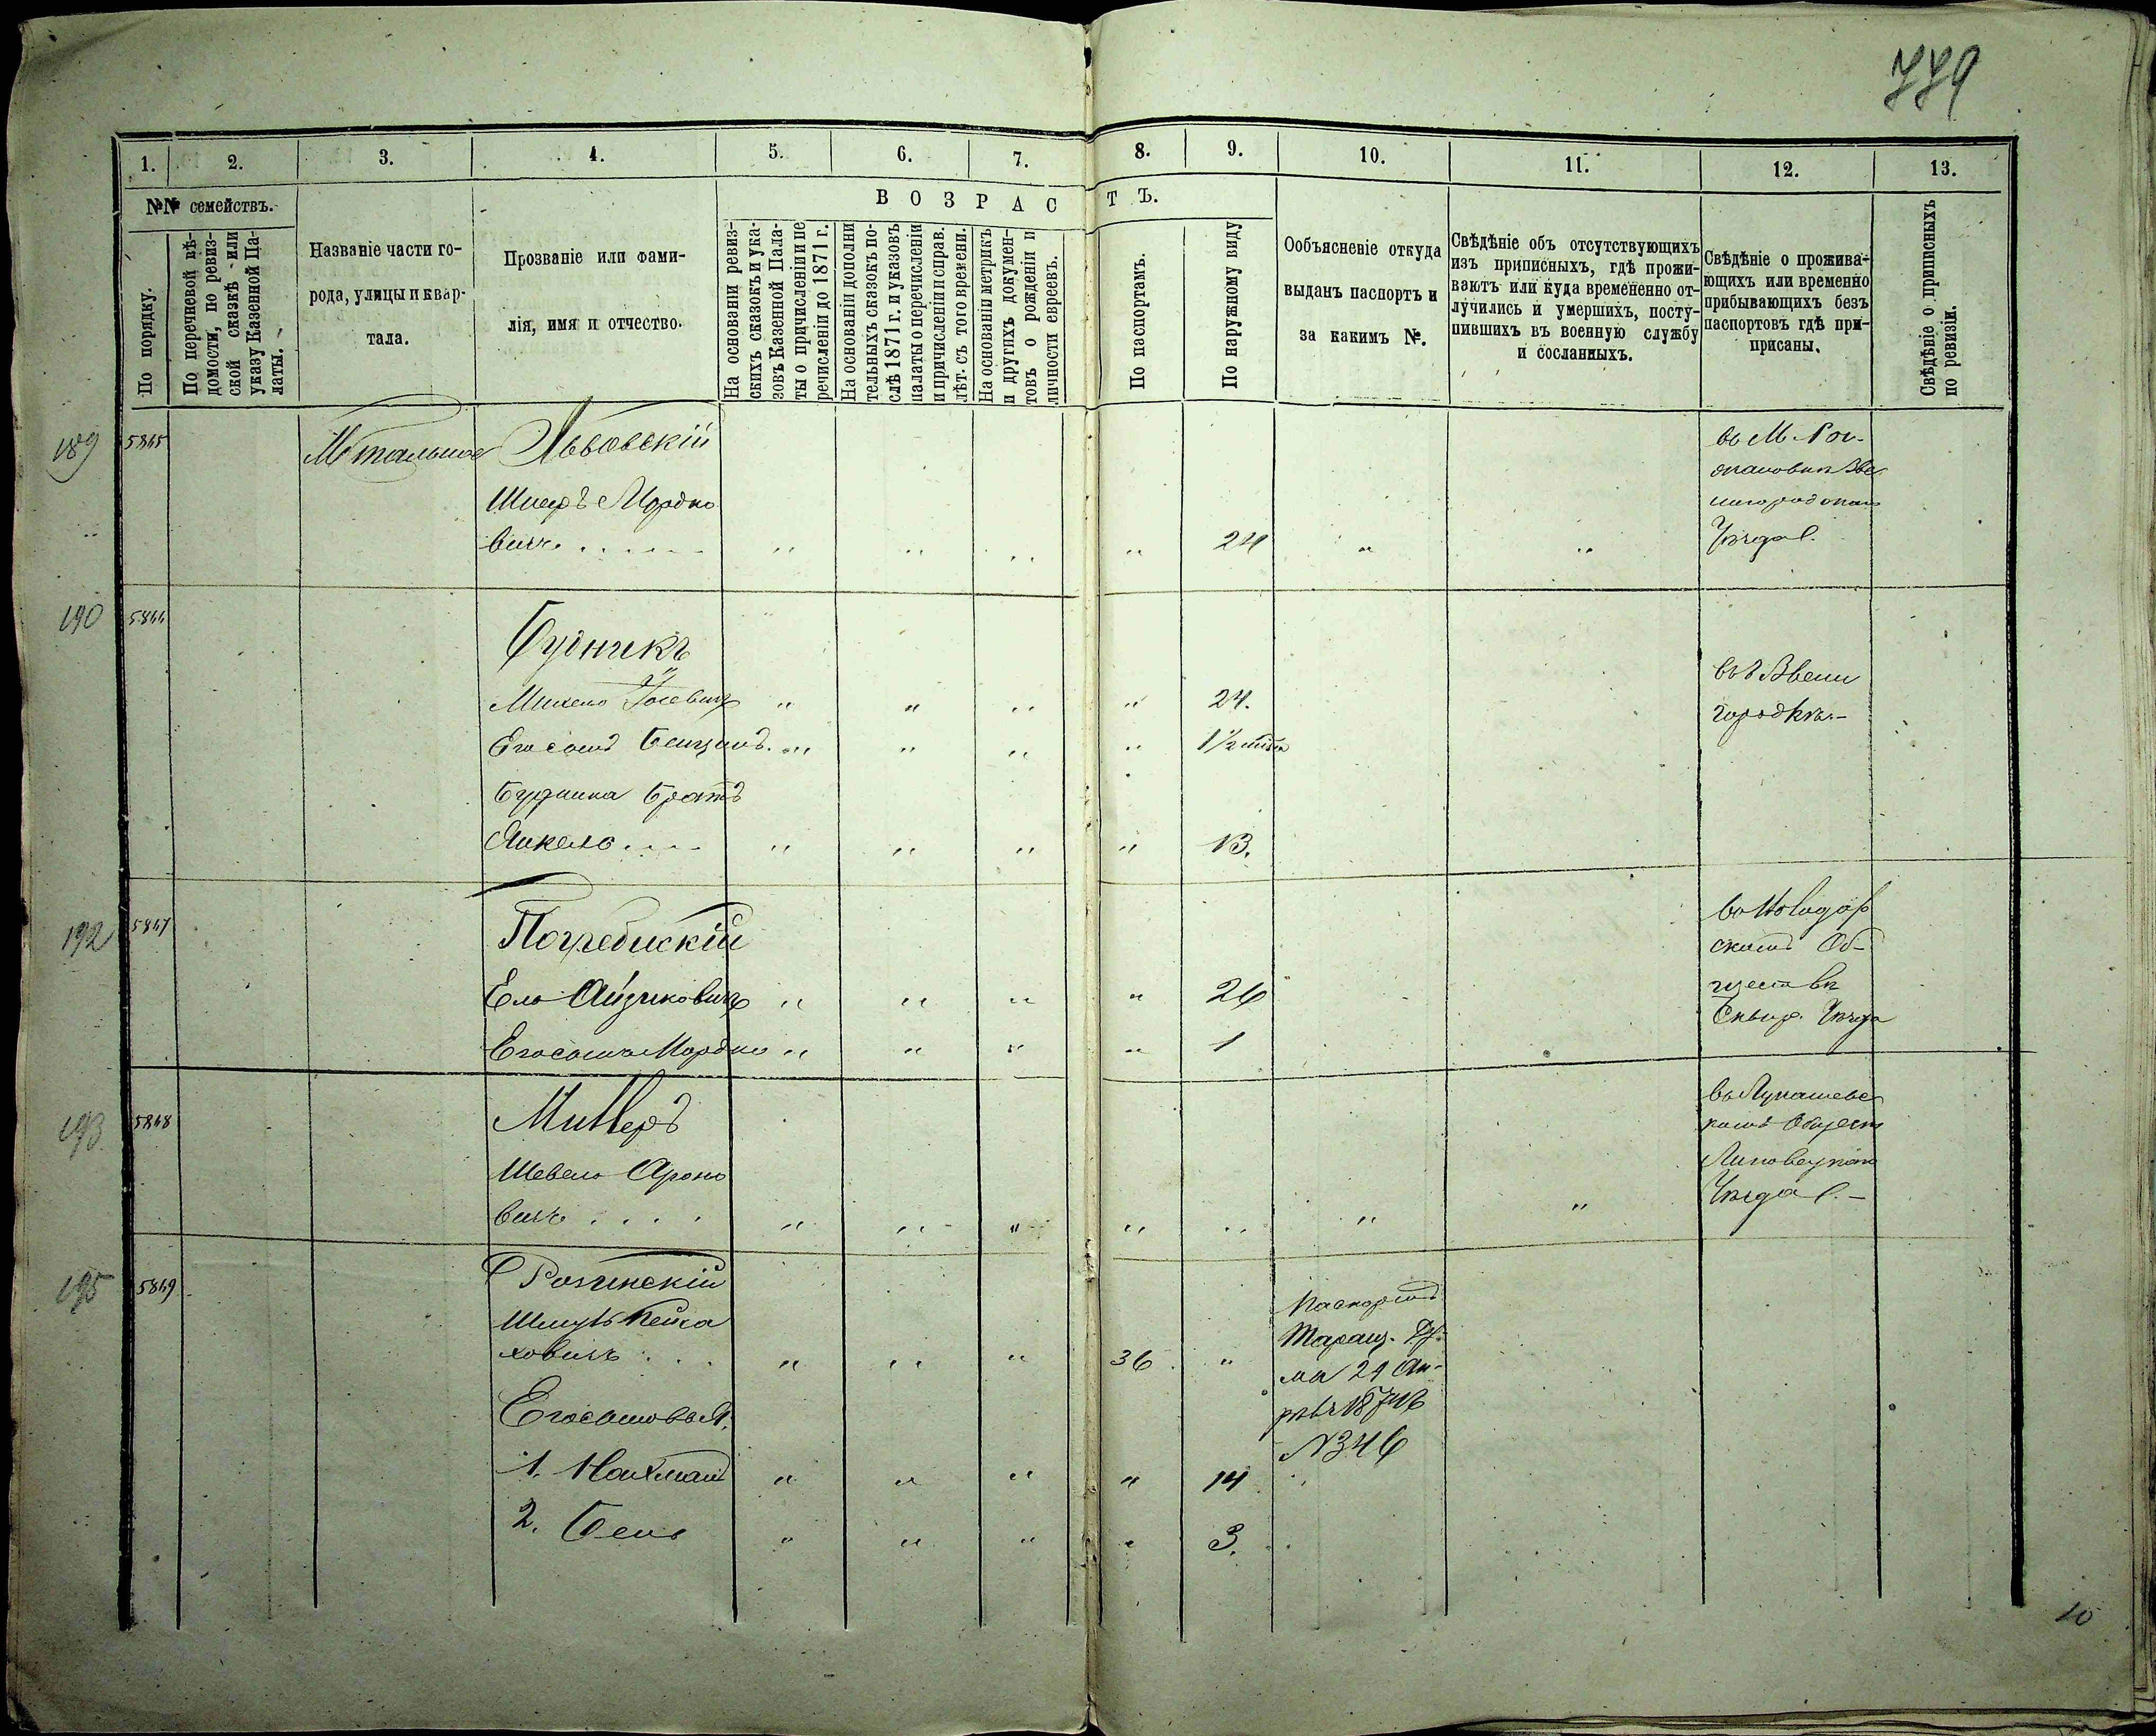 779
1.
2.
3.
4.
5.
6.
7.
8.
9.
10.
11.
12.
13.
№№ семействъ.
По порядку.
По перечневой вѣ-
домости, по ревиз-
ской сказкѣ или
указу Казенной Па-
латы.
Названіе части го-
рода, улицы и квар-
тала.
Прозваніе или фами-
лія, имя и отчество.
ВОЗРАСТЪ.
На основаніи ревиз-
скихъ сказокъ и ука-
зовъ Казенной Пала-
ты о причисленіи и пе
речисленіи до 1871 г.
На основаніи дополни
тельныхъ сказокъ по-
слѣ 1871 г. и указовъ
палаты о перечисленіи
и причисленіи и справ.
лѣт. съ того времени.
На основаніи метрикъ
и другихъ докумен-
товъ о рожденіи и
личности евреевъ.
По паспортамъ.
По наружному виду
Ообъясненіе откуда
выданъ паспортъ и
за какимъ №.
Свѣдѣніе объ отсутствующихъ
изъ приписныхъ, гдѣ прожи-
ваютъ или куда временно от-
лучились и умершихъ, посту-
пившихъ въ военную службу
и сосланныхъ.
Свѣдѣніе о прожива-
ющихъ или временно
прибывающихъ безъ
паспортовъ гдѣ при-
писаны.
Свѣдѣніе о приписныхъ
по ревизіи.
189 5845 М Тальное Львовскій
Шмеръ Мордко
вичъ . . . . . . " " " " 24 " "
въ М.
Звe
нигородскаго
Уѣзда
190 5846
Будникъ
Михель Іосевичъ " " " " 24.
Его сынъ Бенціонъ " " " " 1 1/2
Будника братъ
Янкель . . . . " " " " 13.
въ г Звени
городкѣ.-
192 5847
Погребискій
Ель Айзиковичъ " " " " 26
Его сынъ Мордко " " " " 1
въ Володар
скомъ Об-
ществѣ
Сквир. Уѣзда
193 5848
Миллеръ
Шевель Ароно
вичъ . . . . " " " " " " "
въ Лукашевс
комъ Общест
Липовецкаго
Уѣзда
195 5849
Розинскій
Шмуль Пейса
ховичъ . . . " " " 36 "
Его сыновья.
1. Нахманъ " " " " 14
2. Бень " " " " 3.
Паспортъ
Таращ. Ду-
ма 21 Ап-
№ 346
10